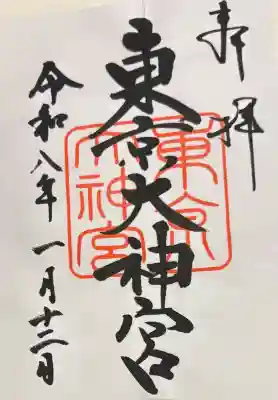 奉拝
東京大神宮
東京大神宮
令和八年一月十二日